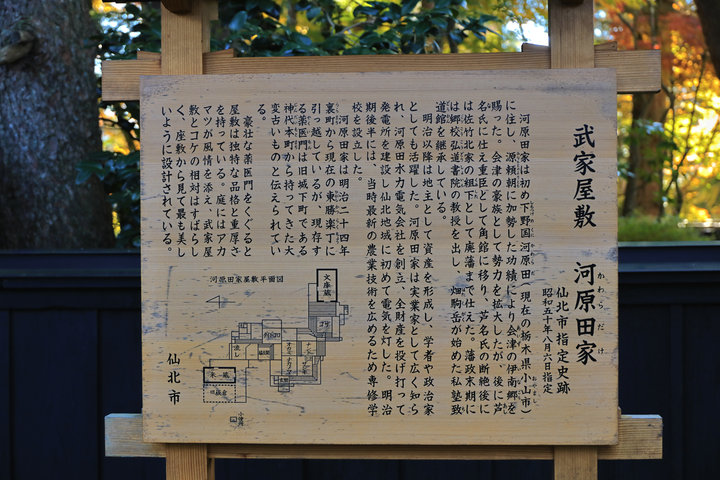 武家屋敷　河原田家
かわらだけ
仙北市指定史跡
昭和五十年八月六日指定
河原田家は初め下野国河原田（現在の栃木県小山市）
おやまし
に住し、源頼朝に加勢した功績により会津の伊南郷を
賜った。会津の豪族として勢力を拡大したが、後に芦
名氏に仕え重臣として角館に移り、芦名氏の断絶後に
は佐竹北家の組下として廃藩まで仕えた。藩政末期に
は郷校弘道書院の教授を出し、畑駒岳が始めた私塾致
道館を継承している。
明治以降は地主として資産を形成し、学者や政治家
としても活躍した。河原田家は実業家としても広く知ら
れ、河原田水力電気会社を創立、全財産を投げ打って
発電所を建設し仙北地域に初めて電気を灯した。明治
期後半には、当時最新の農業技術を広めるため専修学
校を設立した。
河原田家は明治二十四年
裏町から現在の東勝楽丁に
引っ越しているが、現存す
る薬医門は旧城下町である
神代本町から持ってきた大
変古いものと伝えられてい
る。
豪壮な薬医門をくぐると
屋敷は独特な品格と重厚さ
を持っている。庭にはアカ
マツが風情を添え、武家屋
敷とコケの相対はすばらし
く、座敷から見て最も美し
いように設計されている。
河原田家屋敷平面図
文庫蔵
米蔵
仙北市